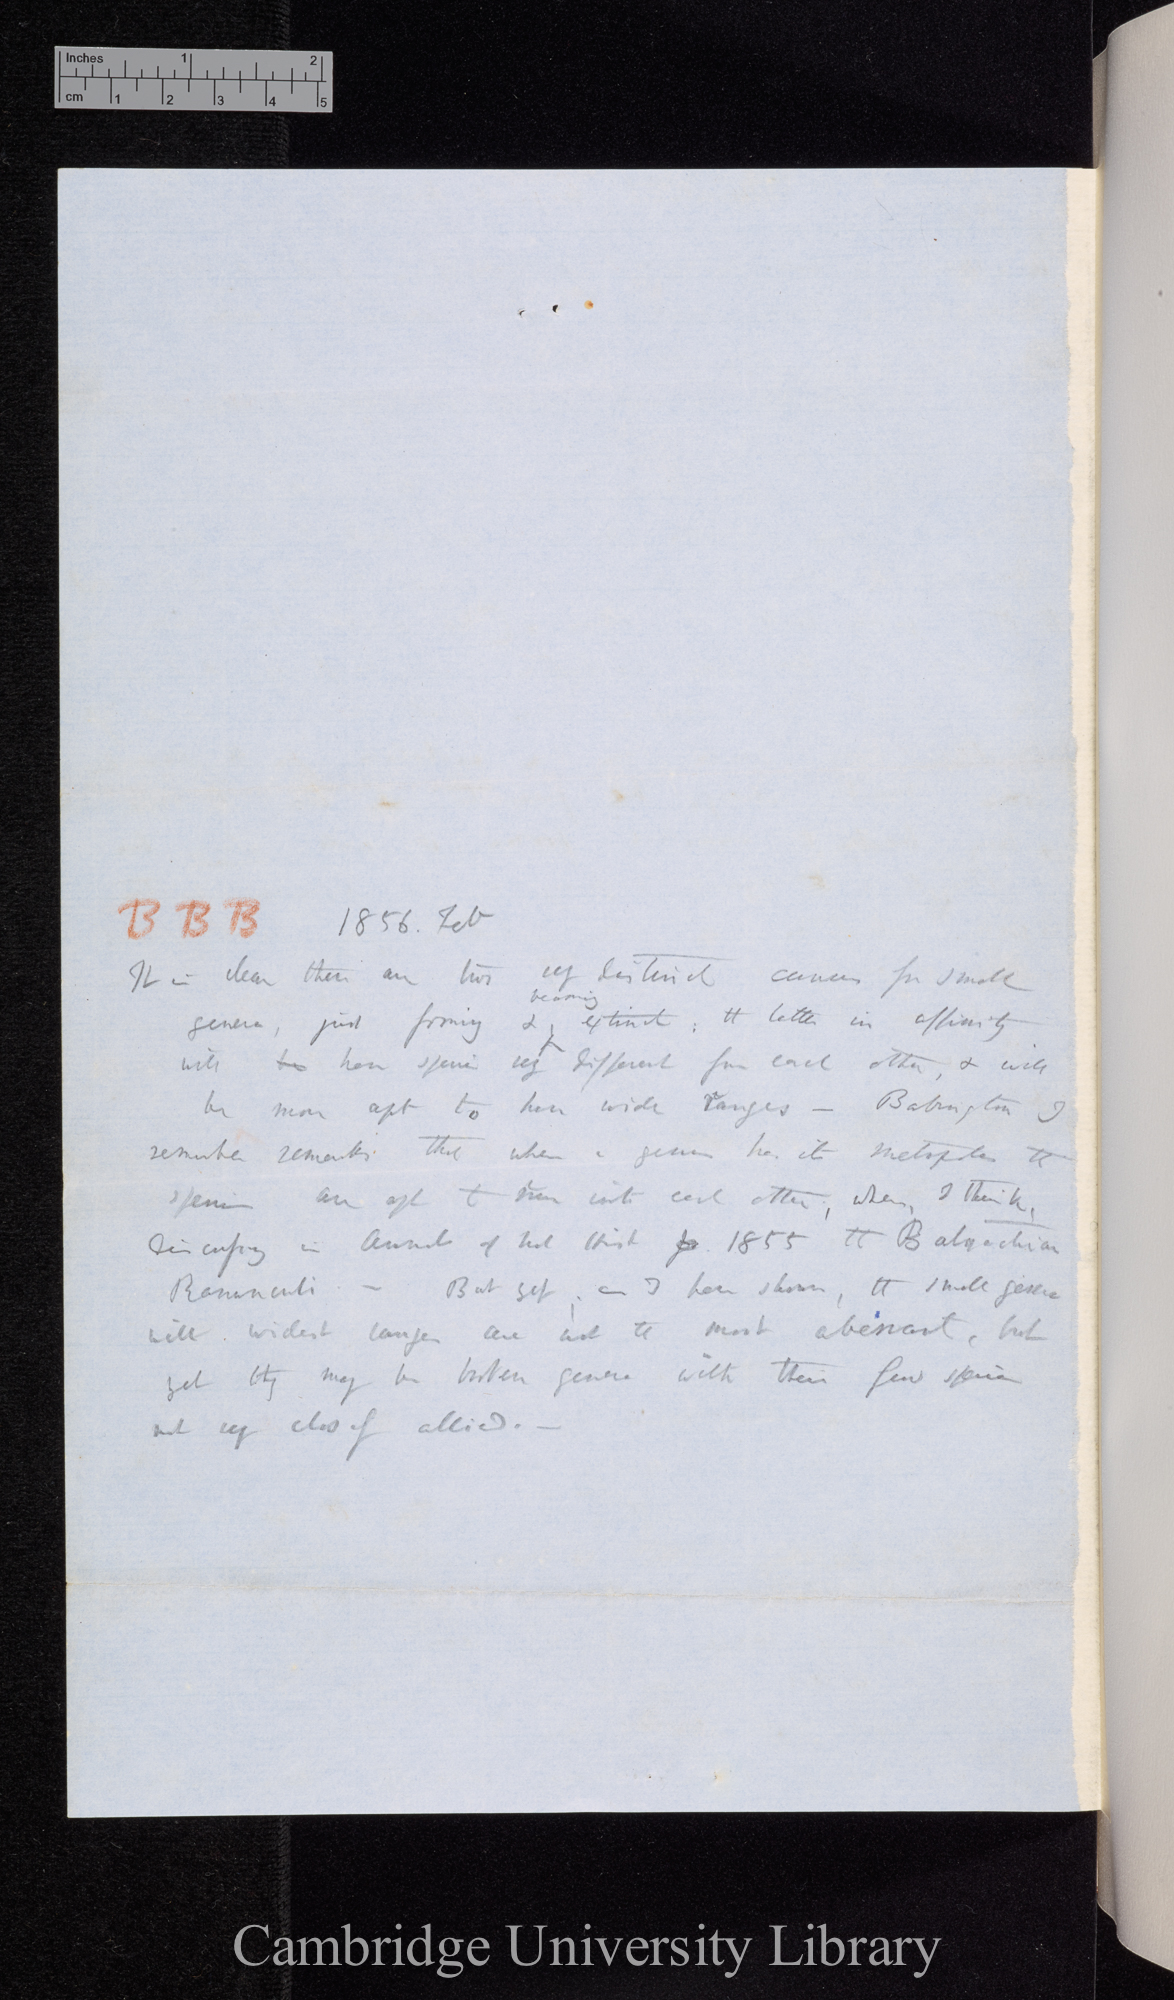 Inches 1 2
cm 1 2 3 4 5
B B B 1856. Feb
It is clear there are two very distinct causes for small
becoming
genera, just forming & extinct; the latter in affinity
will have species very different from each other, & will
be more apt to have wide ranges — Babington I
remember remarks that when a genus has its metropolis the
species are apt to run into each other, when, I think,
discussing in Annals of Nat Hist 1855 the Batrachian
Ranunculi — But yet, as I have shown, the small genera
with widest ranges are not the most aberrant, but
yet they may be broken genera with their few species
not very closely allied. —
Cambridge University Library